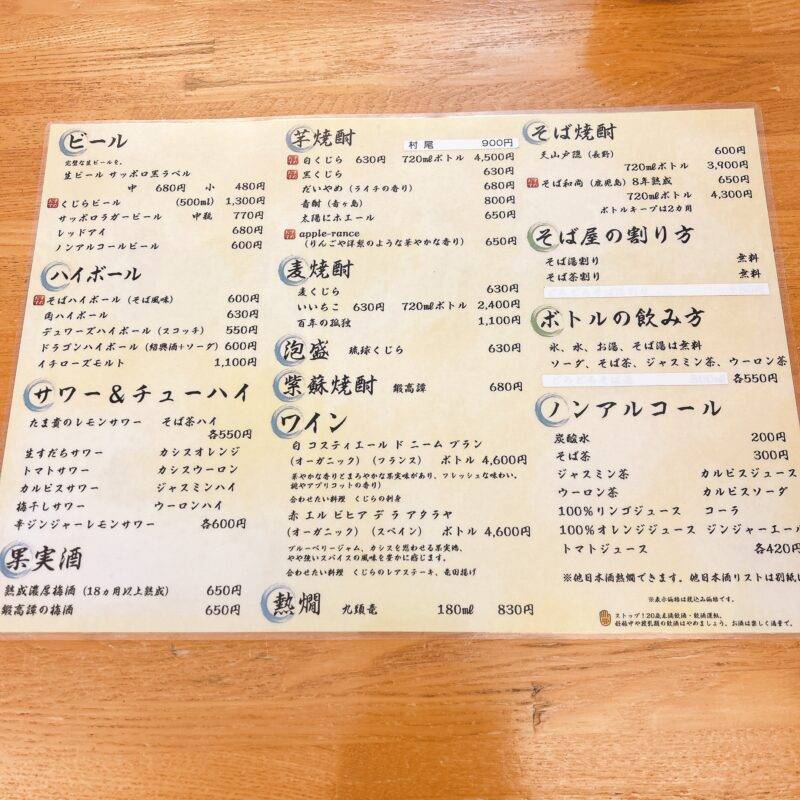 ビール
完璧な生ビールを。
生ビール サッポロ黒ラベル
中 680円 小 480円
くじらビール (500ml) 1,300円
サッポロラガービール 中瓶 770円
レッドアイ 680円
ノンアルコールビール 600円
ハイボール
そばハイボール(そば風味) 600円
角ハイボール 630円
デュワーズハイボール(スコッチ) 550円
ドラゴンハイボール(紹興酒+ソーダ) 600円
イチローズモルト 1,100円
サワー&チューハイ
たま貴のレモンサワー そば茶ハイ
各550円
生すだちサワー カシスオレンジ
トマトサワー カシスウーロン
カルピスサワー ジャスミンハイ
梅干しサワー ウーロンハイ
辛ジンジャーレモンサワー 各600円
果実酒
熟成濃厚梅酒(18ヵ月以上熟成) 650円
鍛高譚の梅酒 650円
芋焼酎
村尾 900円
白くじら 630円 720mlボトル 4,500円
黒くじら 630円
だいやめ(ライチの香り) 680円
青酎(青ヶ島) 800円
太陽にホエール 650円
apple-rance
(りんごや洋梨のような華やかな香り) 650円
麦焼酎
麦くじら 630円
いいちこ 630円 720mlボトル 2,400円
百年の孤独 1,100円
泡盛 琉球くじら 630円
紫蘇焼酎 鍛高譚 680円
ワイン
白 コスティエール ド ニーム ブラン
(オーガニック)(フランス) ボトル 4,600円
華やかな香りとまろやかな果実味があり、フレッシュな味わい。
桃やアプリコットの香り)
合わせたい料理 くじらの刺身
赤 エル ビヒア デ ラ アタラヤ
(オーガニック)(スペイン) ボトル 4,600円
ブルーベリージャム、カシスを思わせる果実感、
やや強いスパイスの風味を豊かに感じます。
合わせたい料理 くじらのレアステーキ、竜田揚げ
熱燗 九頭竜 180ml 830円
そば焼酎
天山戸隠(長野) 600円
720mlボトル 3,900円
そば和尚(鹿児島)8年熟成 650円
720mlボトル 4,300円
ボトルキープは2カ月
そば屋の割り方
そば湯割り 無料
そば茶割り 無料
ボトルの飲み方
氷、水、お湯、そば湯は無料
ソーダ、そば茶、ジャスミン茶、ウーロン茶
各550円
ノンアルコール
炭酸水 200円
そば茶 300円
ジャスミン茶 カルピスジュース
ウーロン茶 カルピスソーダ
100%リンゴジュース コーラ
100%オレンジジュース ジンジャーエール
トマトジュース 各420円
※他日本酒熱燗できます。他日本酒リストは別紙
※表示価格は税込み価格です。
ストップ!20歳未満飲酒・飲酒運転。
妊娠中や授乳期の飲酒はやめましょう。お酒は楽しく適量で。